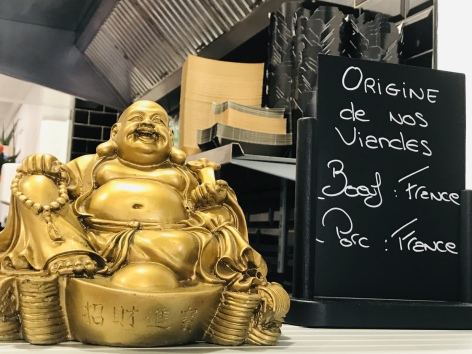 ORIGINE
de nos
Viandes
- Boeuf : France
- Porc : France
招財進寶